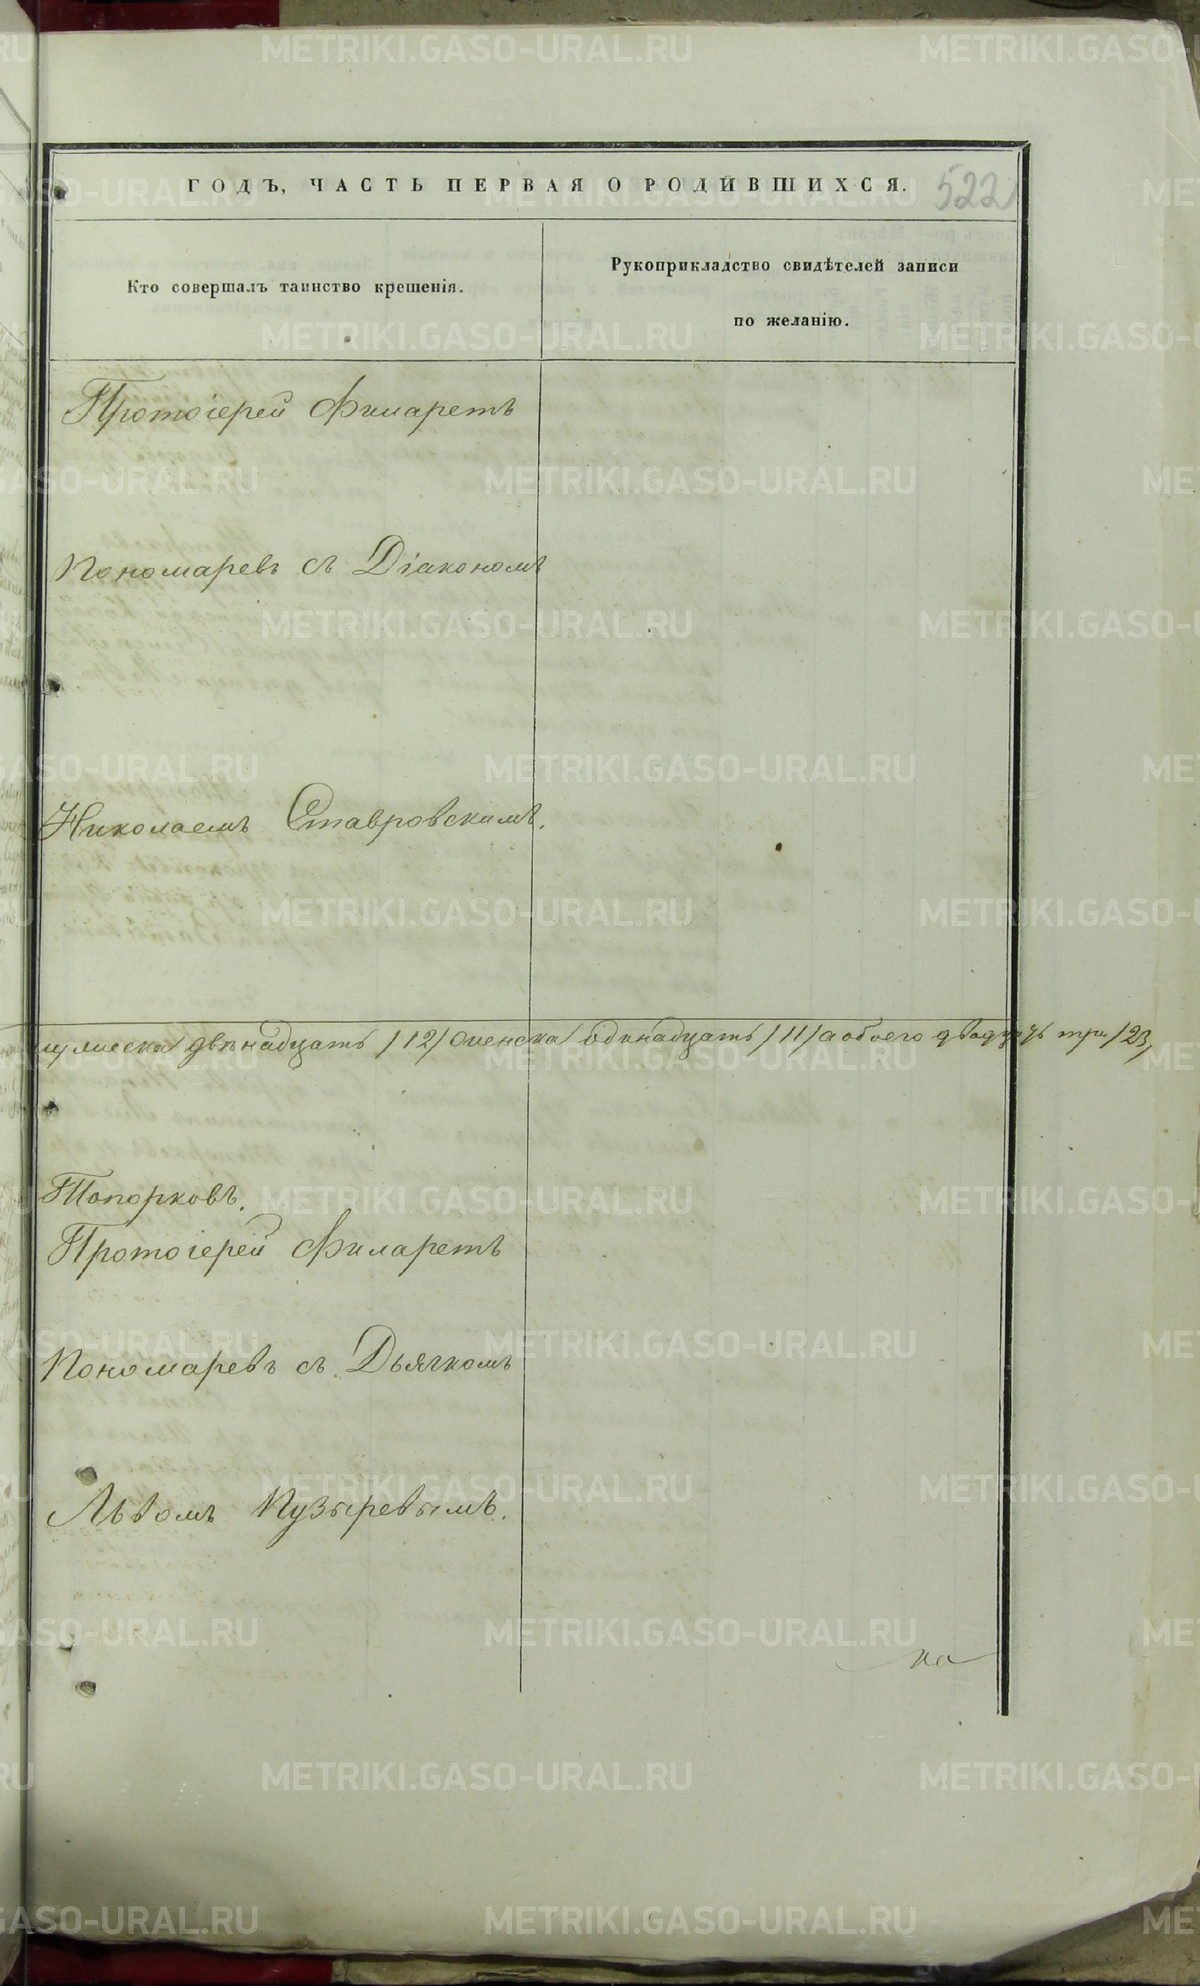 ГОДЪ, ЧАСТЬ ПЕРВАЯ О РОДИВШИХСЯ. 522
Кто совершалъ таинство крещенія.
Рукоприкладство свидѣтелей записи
по желанію.
Протоіерей Филаретъ
Пономаревъ съ Діакономъ
Николаемъ Ставровскимъ.
мужеска двѣнадцать /12/ женска одинадцать /11/ а обоего двадцать три /23/
Топорковъ.
Протоіерей Филаретъ
Пономаревъ съ Дьячкомъ
Львомъ Пузыревымъ.
на
METRIKI.GASO-URAL.RU